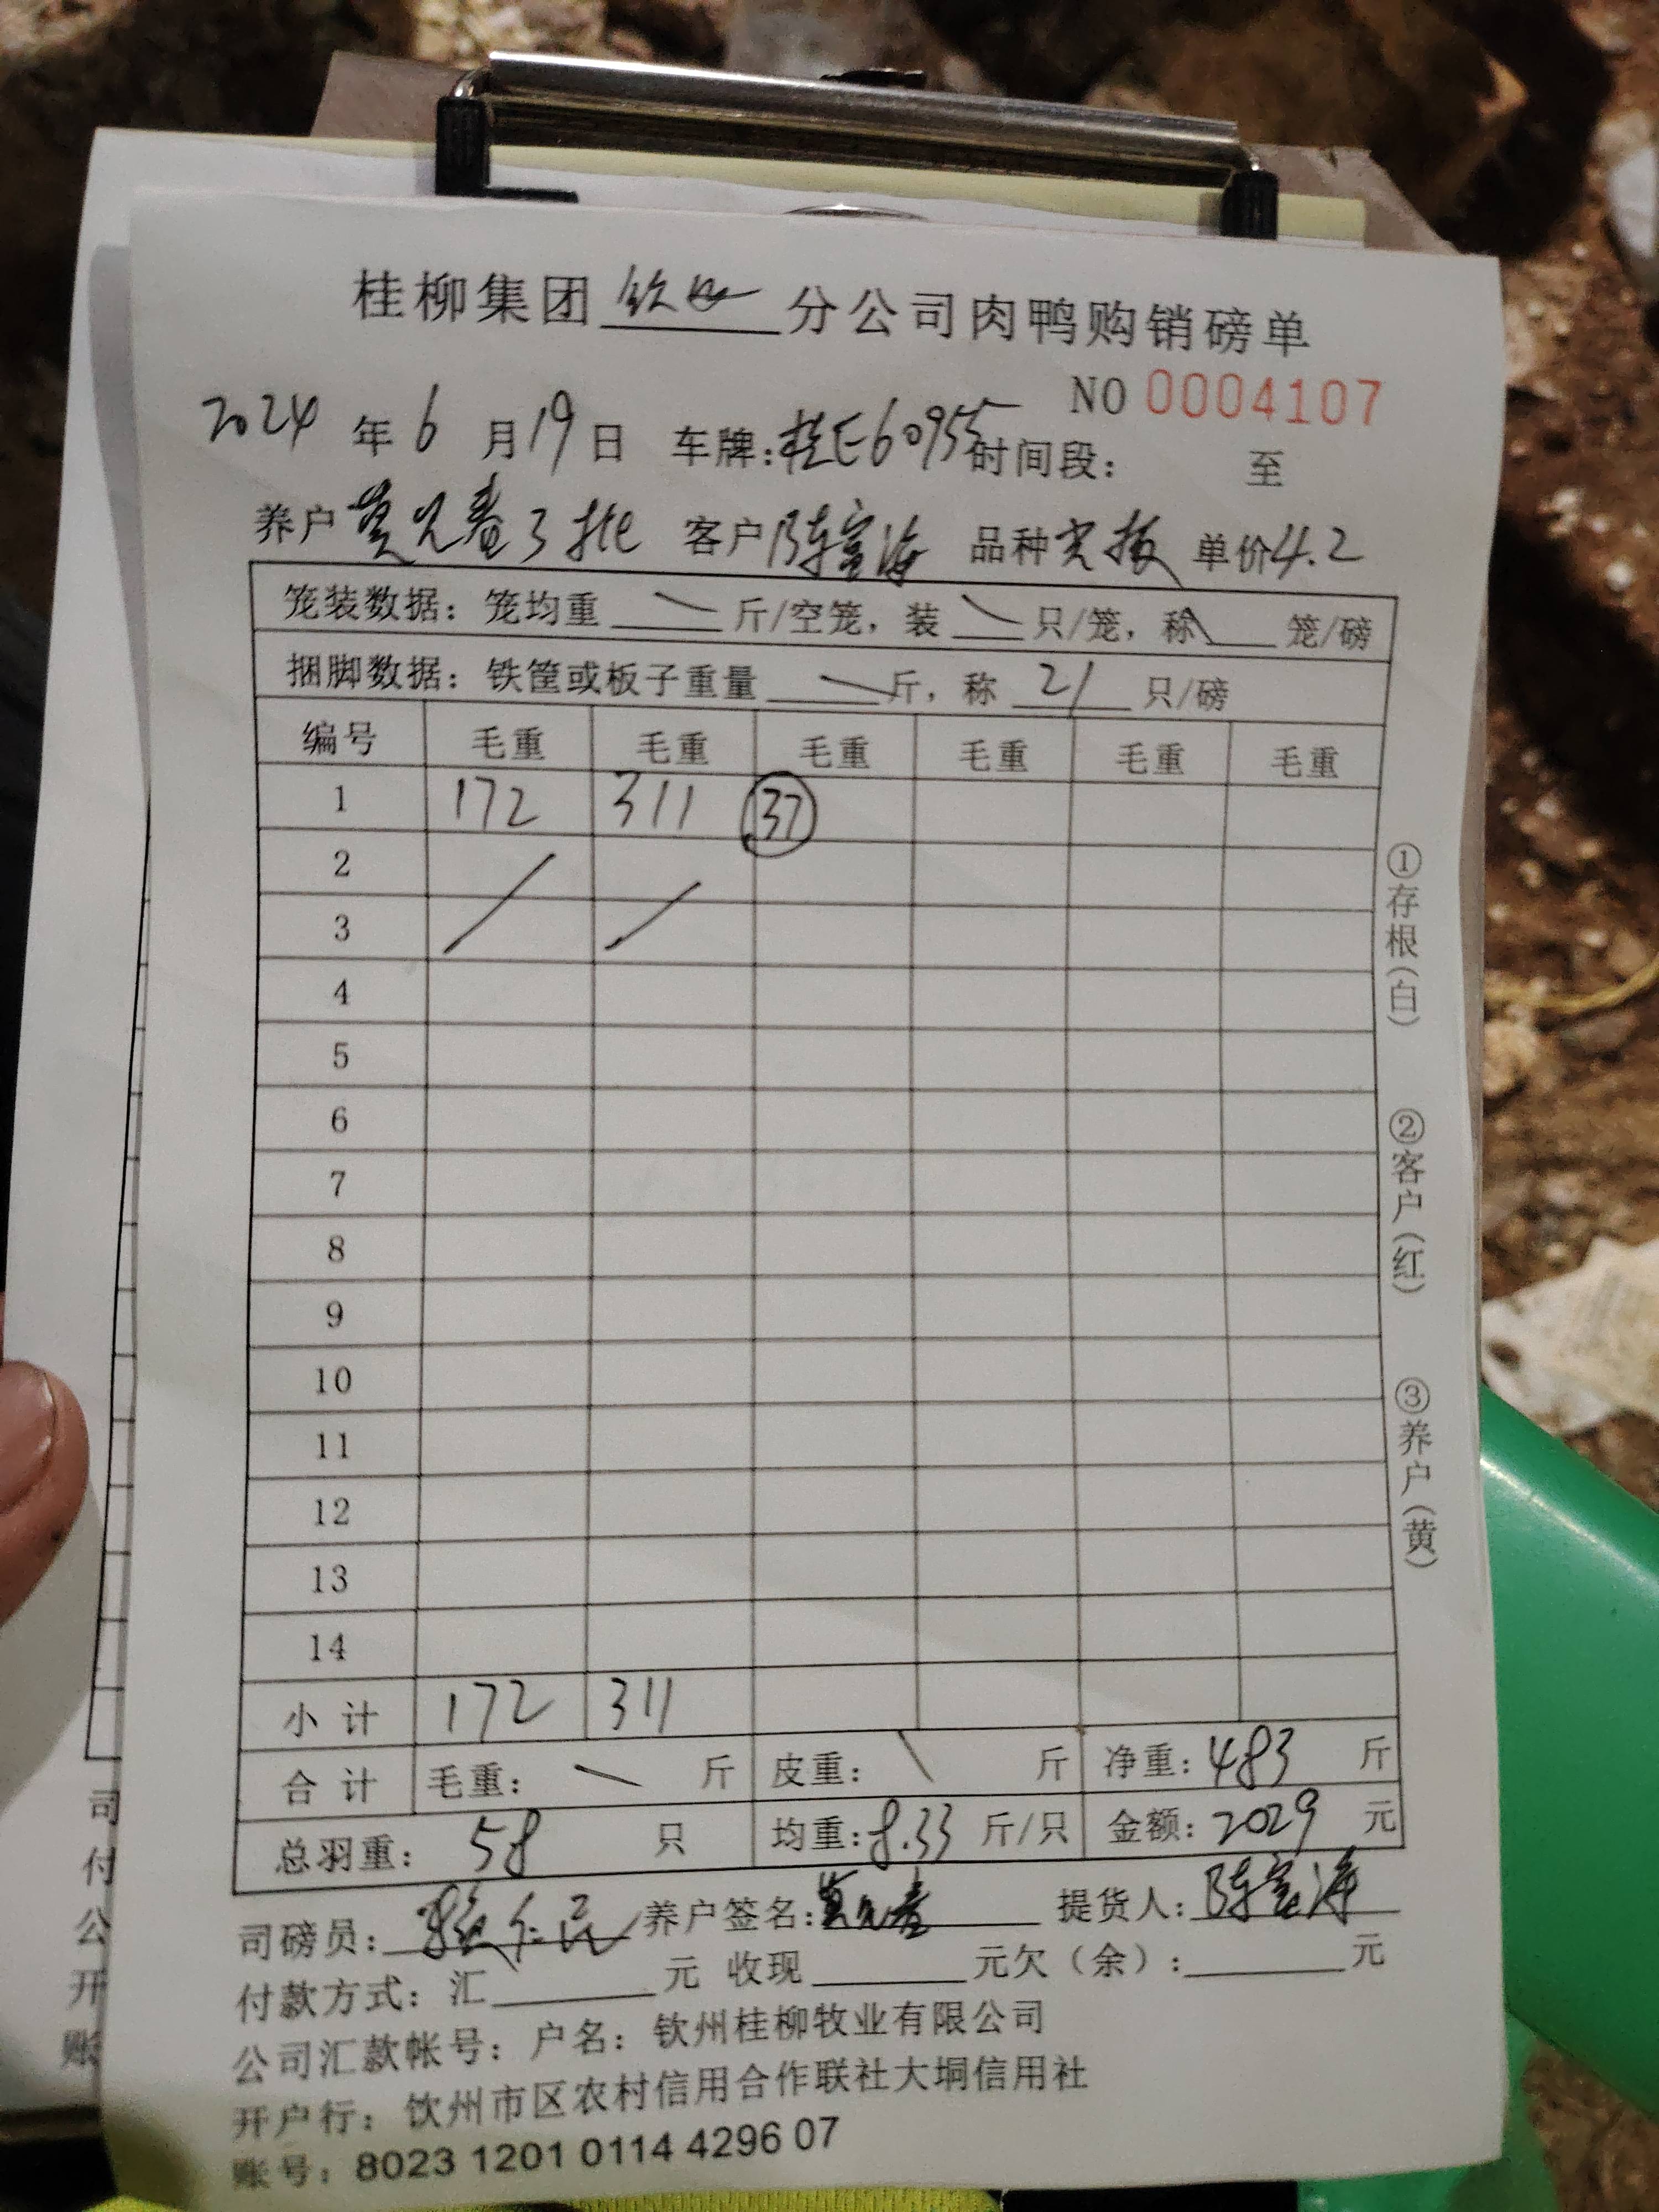 桂柳集团钦州分公司肉鸭购销磅单
NO 0004107
2024年6月19日 车牌:桂E60955 时间段: 至
养户 3批 客户陈富海 品种 单价4.2
笼装数据: 笼均重 斤/空笼, 装 只/笼, 称 笼/磅
捆脚数据: 铁筐或板子重量 斤, 称 21 只/磅
编号 毛重 毛重 毛重 毛重 毛重 毛重
1 172 311 37
2
3
4
5
6
7
8
9
10
11
12
13
14
小计 172 311
合计 毛重: 斤 皮重: 斤 净重: 483 斤
总羽重: 58 只 均重: 8.33 斤/只 金额: 2029 元
司磅员: 养户签名: 提货人: 陈富海
付款方式: 汇 元 收现 元欠(余): 元
公司汇款帐号: 户名: 钦州桂柳牧业有限公司
开户行: 钦州市区农村信用合作联社大垌信用社
账号: 8023 1201 0114 4296 07
①存根(白)
②客户(红)
③养户(黄)
司
付
公
开
账